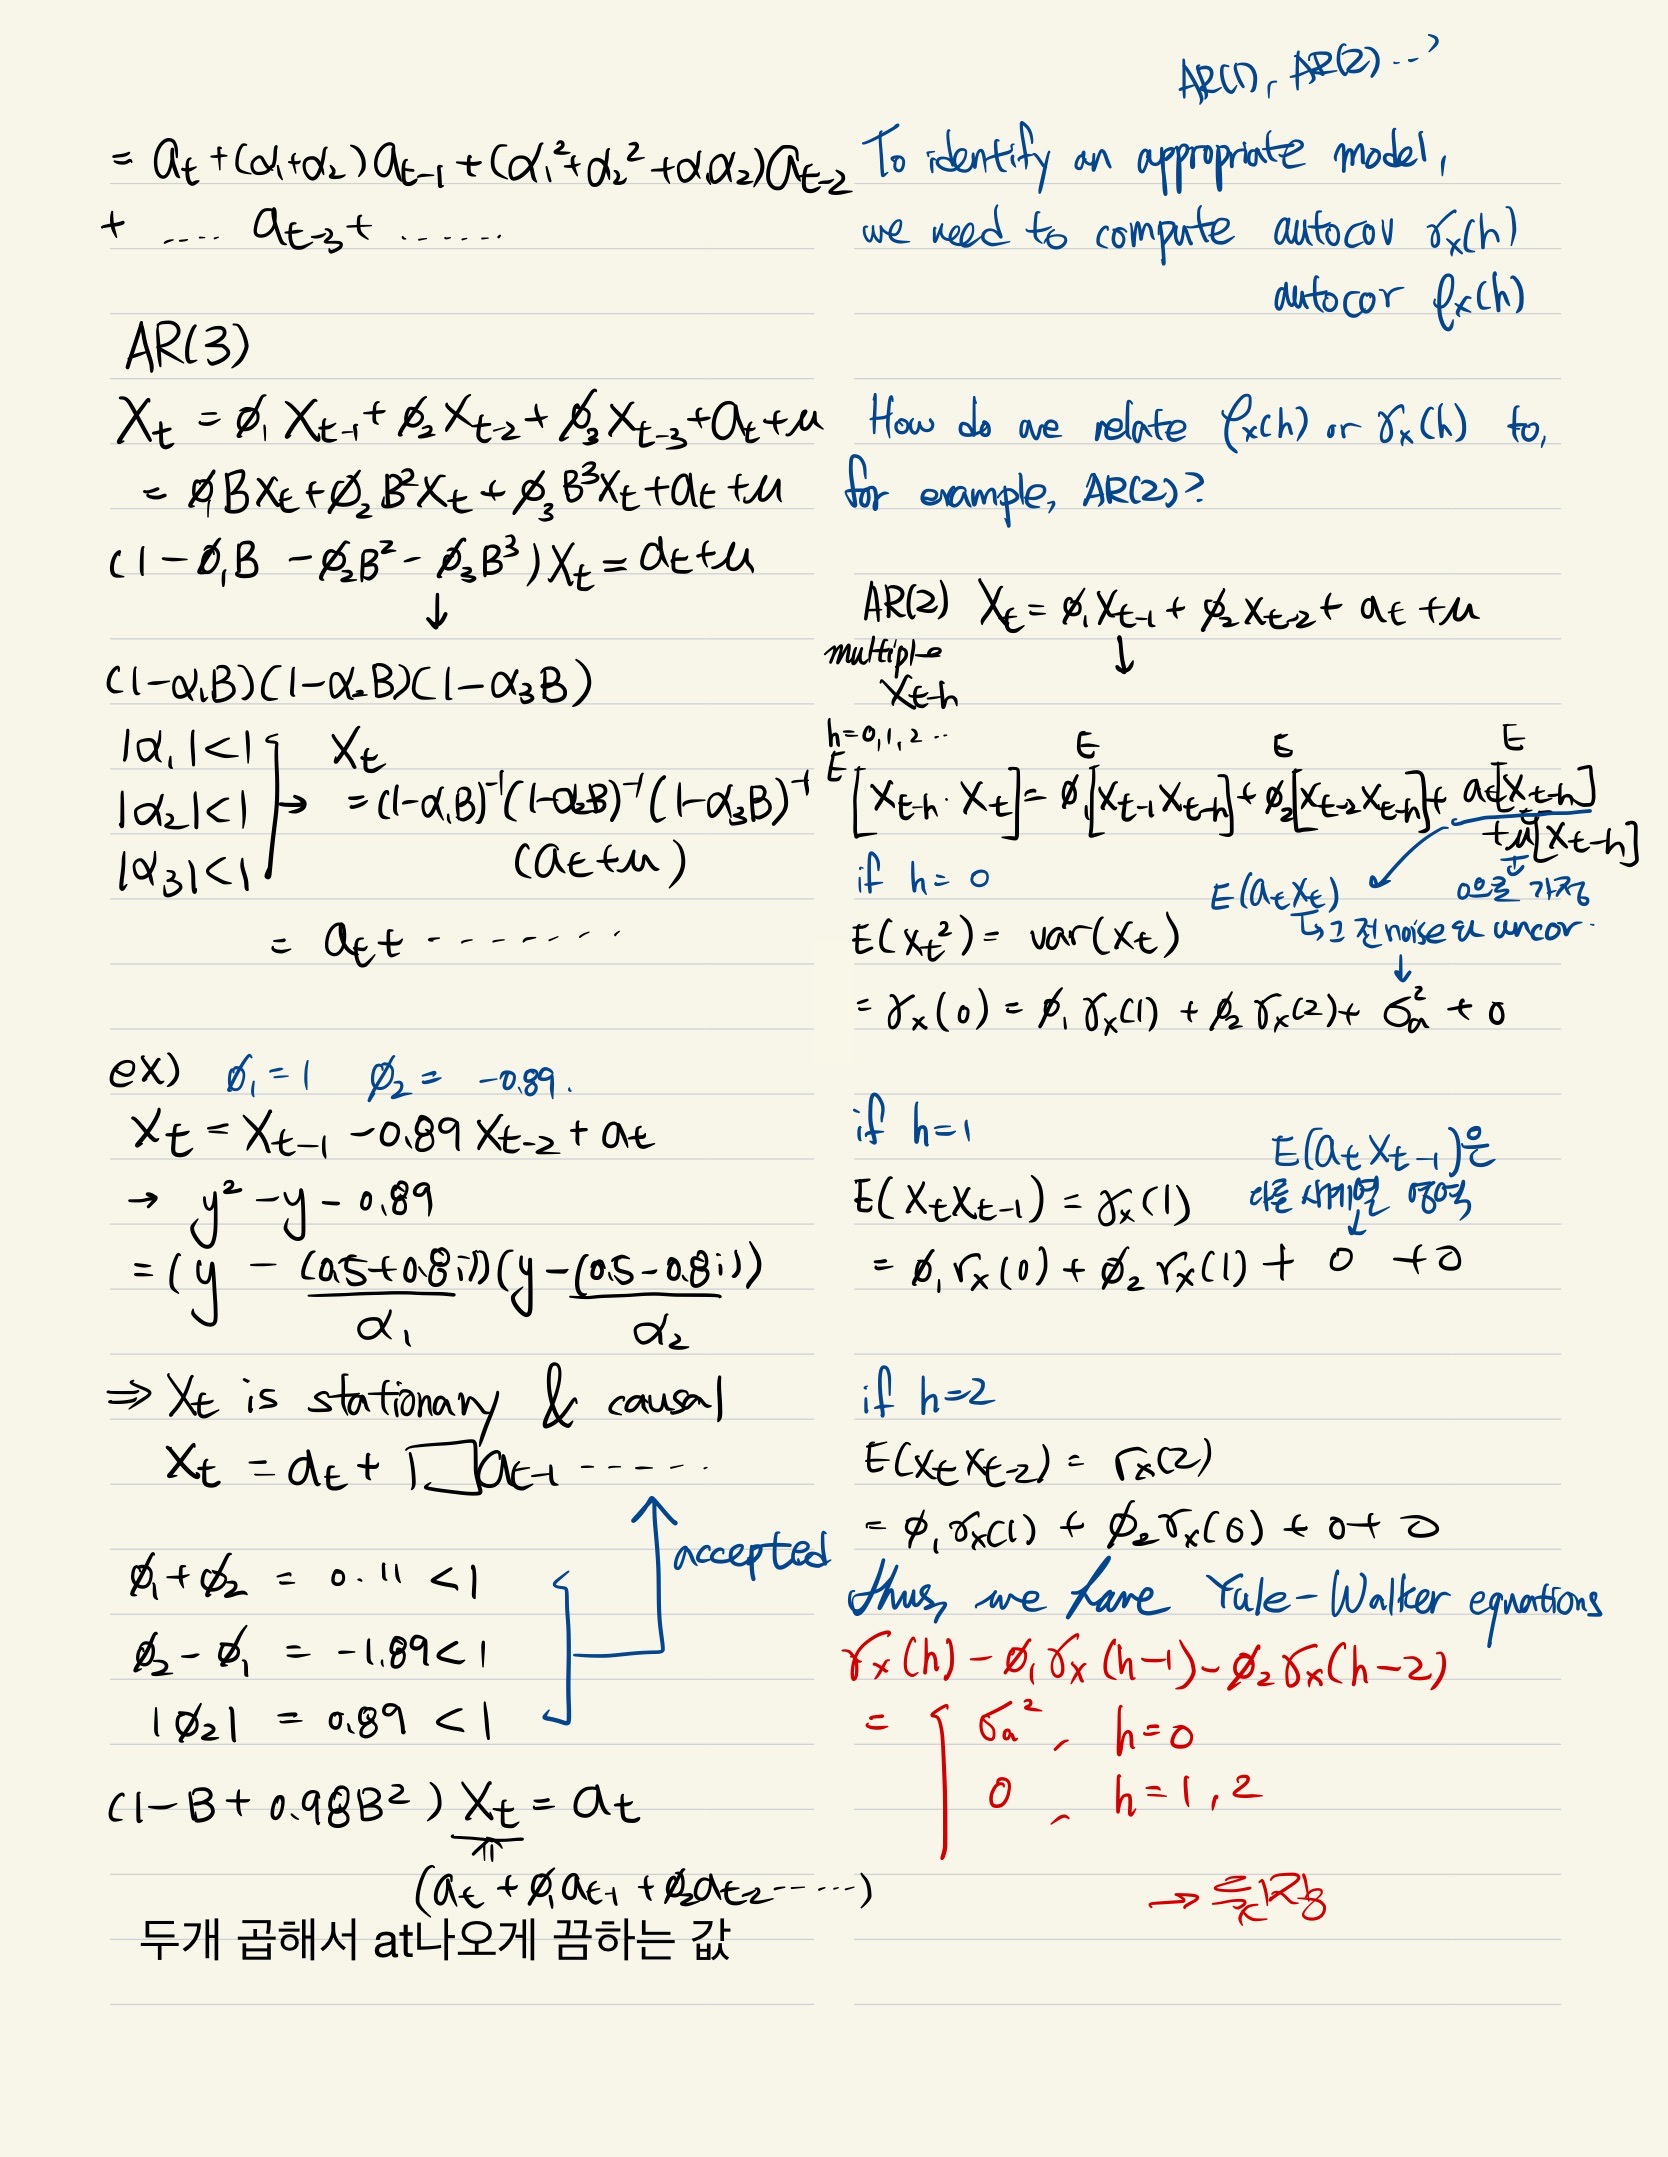 = at + (α1+α2) at-1 + (α1²+α2²+α1α2) at-2
+ ..... at-3 + .......
AR(3)
Xt = ∅1 Xt-1 + ∅2 Xt-2 + ∅3 Xt-3 + at + μ
= ∅1BXt + ∅2B²Xt + ∅3B³Xt + at + μ
(1-∅1B -∅2B² - ∅3B³)Xt = at+μ
↓
(1-α1B)(1-α2B)(1-α3B)
|α1|<1
|α2|<1
|α3|<1
→ Xt
= (1-α1B)⁻¹(1-α2B)⁻¹(1-α3B)⁻¹
(at+μ)
= at + ........
ex) ∅1 = 1 ∅2 = -0.89.
Xt = Xt-1 - 0.89 Xt-2 + at
→ y² - y - 0.89
= (y - (0.5+0.8i))(y-(0.5-0.8i))
α1 α2
⇒ Xt is stationary & causal
Xt = at + 1□at-1 ......
accepted
∅1+∅2 = 0.11 <1
∅2-∅1 = -1.89<1
|∅2| = 0.89 <1
(1-B+0.98B²) Xt = at
(at + ∅1at-1 + ∅2at-2 ......)
두개 곱해서 at나오게 끔하는 값
AR(1), AR(2) ...?
To identify an appropriate model,
we need to compute autocov γx(h)
autocor ρx(h)
How do we relate ρx(h) or γx(h) to,
for example, AR(2)?
AR(2) Xt = ∅1Xt-1 + ∅2Xt-2 + at + μ
multiple ↓
Xt-h
h=0,1,2 ...
E E E E
[Xt-h · Xt] = ∅1[Xt-1Xt-h] + ∅2[Xt-2Xt-h] + at[Xt-h]
+μ[Xt-h]
if h=0
E(atXt) 0으로 가정
E(Xt²) = var(Xt) ↳그 전noise와 uncor.
↓
= γx(0) = ∅1γx(1) + ∅2γx(2) + σa² + 0
if h=1
E(atXt-1)은
다른 시계열 영역
↓
E(XtXt-1) = γx(1)
= ∅1γx(0) + ∅2γx(1) + 0 + 0
if h=2
E(XtXt-2) = γx(2)
= ∅1γx(1) + ∅2γx(0) + 0 + 0
thus, we have Yule-Walker equations
γx(h) - ∅1γx(h-1) - ∅2γx(h-2)
= σa², h=0
0, h=1,2
→